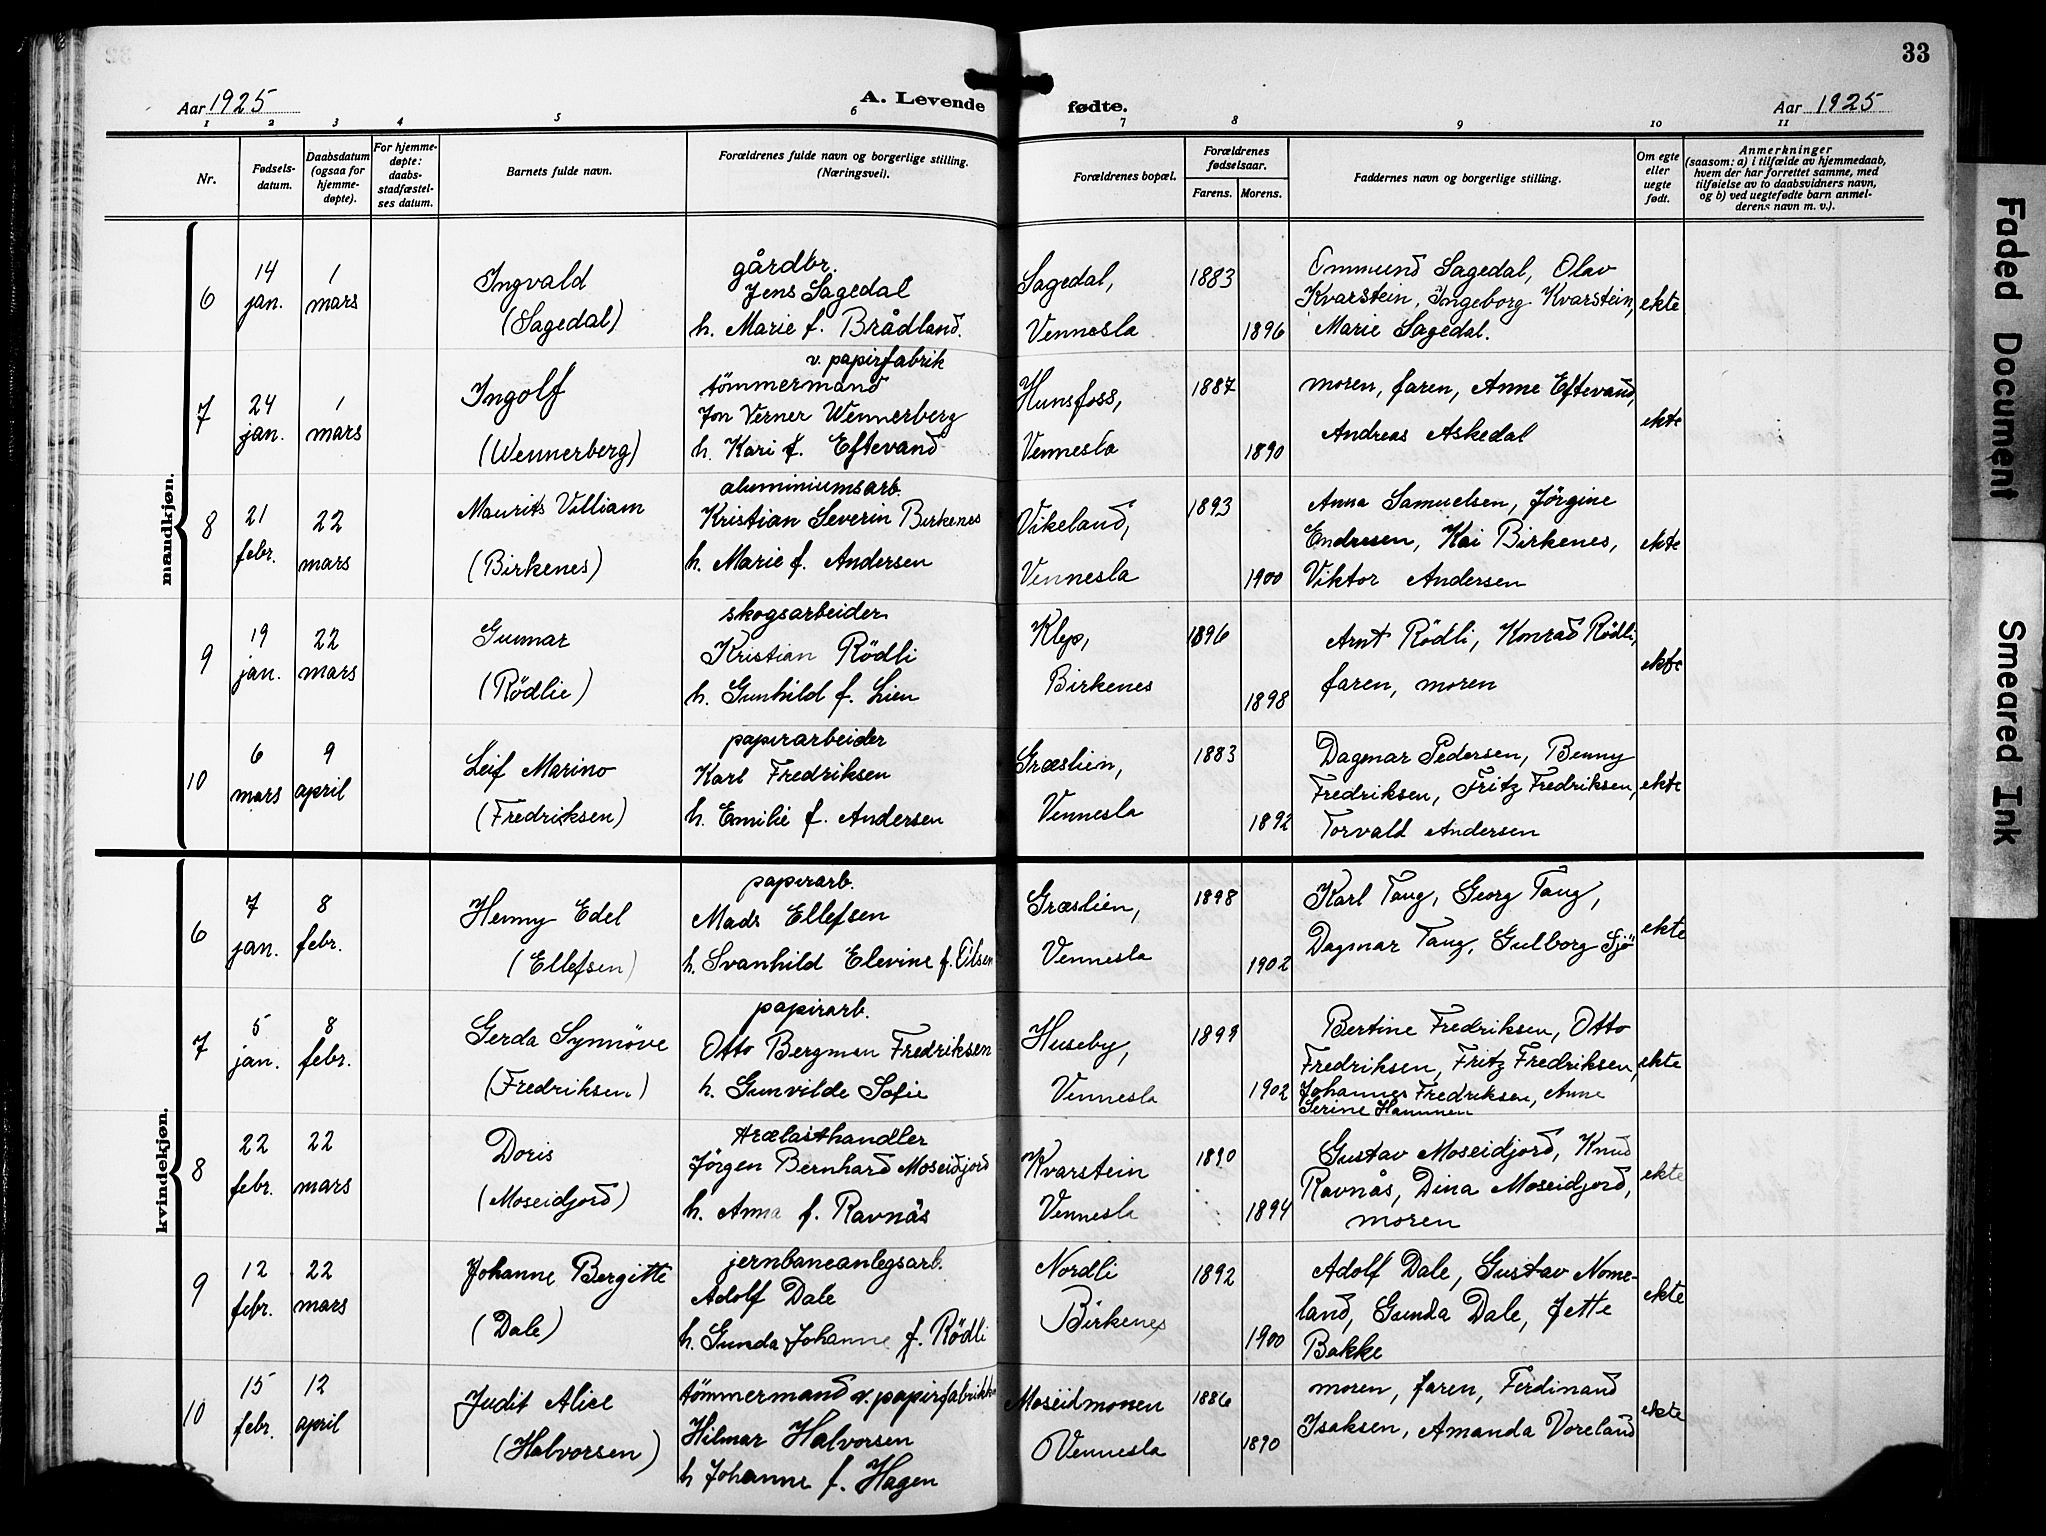 33
Aar 1925
A. Levende fødte.
Aar 1925
1 2 3 4 5 6 7 8 9 10 11
Nr.
Fødsels-
datum.
Daabsdatum
(ogsaa for
hjemme-
døpte).
For hjemme-
døpte:
daabs-
stadfæstel-
ses datum.
Barnets fulde navn.
Forældrenes fulde navn og borgerlige stilling.
(Næringsvei).
Forældrenes bopæl.
Forældrenes
fødselsaar.
Farens. Morens.
Faddernes navn og borgerlige stilling.
Om egte
eller
uegte
født.
Anmerkninger
(saasom: a) i tilfælde av hjemmedaab,
hvem der har forrettet samme, med
tilføielse av to daabsvidners navn,
og b) ved uegtefødte barn anmel-
derens navn m. v.).
mandkjøn.
6
14
jan.
1
mars
Ingvald
(Sagedal)
gårdbr.
Jens Sagedal
h. Marie f. Brådland.
Sagedal,
Vennesla
1883
1896
Ommund Sagedal, Olav
Kvarstein, Ingeborg Kvarstein,
Marie Sagedal.
ekte
7
24
jan.
1
mars
Ingolf
(Wennerberg)
v. papirfabrik
tømmermand
Jon Verner Wennerberg
h. Kari f. Eftevand
Hunsfoss,
Vennesla
1887
1890
moren, faren, Anne Eftevand,
Andreas Askedal
ekte
8
21
febr.
22
mars
Maurits Villiam
(Birkenes)
aluminiumsarb.
Kristian Severin Birkenes
h. Marie f. Andersen
Vikeland,
Vennesla
1893
1900
Anna Samuelsen, Jørgine
Endresen, Kai Birkenes,
Viktor Andersen
ekte
9
19
jan.
22
mars
Gunnar
(Rödlie)
skogsarbeider
Kristian Rödli
h. Gunhild f. Lien
Klep,
Birkenes
1896
1898
Arnt Rödli, Konrad Rödli,
faren, moren
ekte
10
6
mars
9
april
Leif Marino
(Fredriksen)
papirarbeider
Karl Fredriksen
h. Emilie f. Andersen
Græslien,
Vennesla
1883
1892
Dagmar Pedersen, Benny
Fredriksen, Fritz Fredriksen,
Torvald Andersen
ekte
kvindekjøn.
6
7
jan.
8
febr.
Henny Edel
(Ellefsen)
papirarb.
Mads Ellefsen
h. Svanhild Elevine f. Oilsen
Græslien,
Vennesla
1898
1902
Karl Taug, Georg Taug,
Dagmar Taug, Gulborg Sjö
ekte
7
5
jan.
8
febr.
Gerda Synnöve
(Fredriksen)
papirarb.
Otto Bergman Fredriksen
h. Gunvilde Sofie
Huseby,
Vennesla
1899
1902
Bertine Fredriksen, Otto
Fredriksen, Fritz Fredriksen,
Johannes Fredriksen, Anne
Serine Hammen
ekte
8
22
febr.
22
mars
Doris
(Moseidjord)
trælasthandler
Jørgen Bernhard Moseidjord
h. Anna f. Ravnås
Kvarstein
Vennesla
1890
1894
Gustav Moseidjord, Knud
Ravnås, Dina Moseidjord,
moren
ekte
9
12
febr.
22
mars
Johanne Bergitte
(Dale)
jernbaneanlegsarb.
Adolf Dale
h. Gunda Johanne f. Rödli
Nordli
Birkenes
1892
1900
Adolf Dale, Gustav Nome-
land, Gunda Dale, Jette
Bakke
ekte
10
15
febr.
12
april
Judit Alice
(Halvorsen)
tömmermand v. papirfabrikk
Hilmar Halvorsen
h Johanne f. Hagen
Moseidmonen
Vennesla
1886
1890
moren, faren, Ferdinand
Isaksen, Amanda Voreland
ekte
Faded Document
Smeared Ink